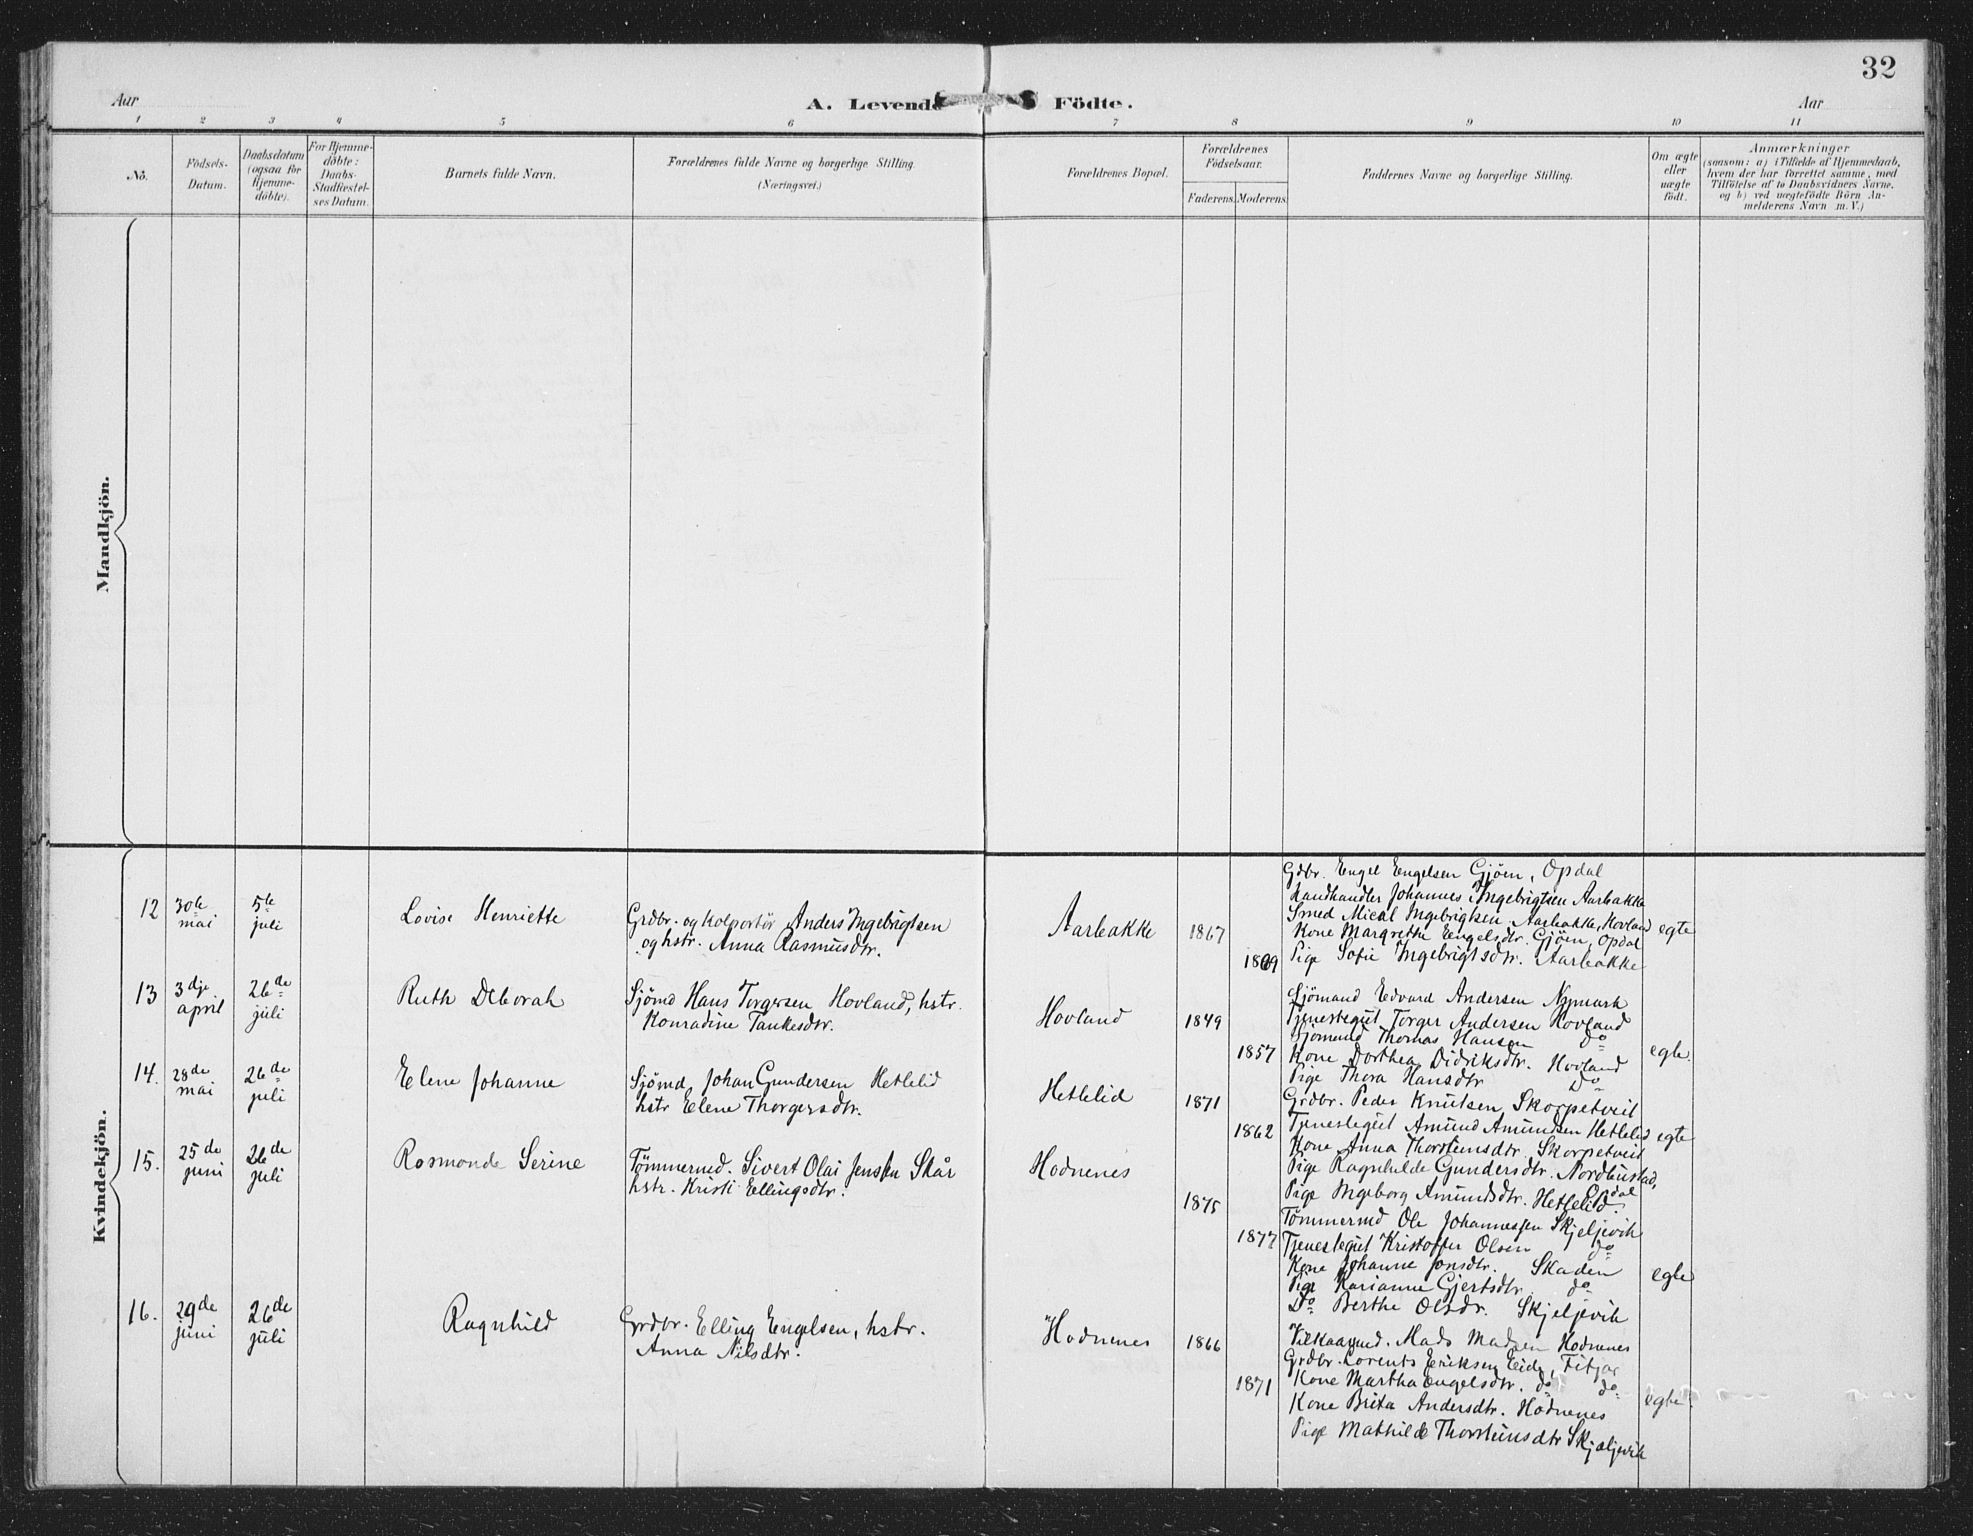 32
Aar
A. Levende Födte.
Aar
1 2 3 4 5 6 7 8 9 10 11
Nö.
Födsels-Datum.
Daabsdatum (ogsaa for Hjemme-döbte).
For Hjemme-döbte: Daabs-Stadfæstel-ses Datum.
Barnets fulde Navn.
Forældrenes fulde Navne og borgerlige Stilling.
(Næringsvei.)
Forældrenes Bopæl.
Forældrenes Födselsaar.
Faderens. Moderens.
Faddernes Navne og borgerlige Stilling.
Om ægte eller uægte födt.
Anmærkninger
(saasom: a) i Tilfælde af Hjemmedaab,
hvem der har forrettet samme, med
Tilföielse af to Daabsvidners Navne.
og b) ved uægtefödte Börn An-
melderens Navn m. V.)
Mandkjön.
Kvindekjön.
12 30te mai 5te juli Lovise Henriette
Grdbr. og kolportör Anders Ingebrigtsen
og hstr. Anna Rasmusdtr.
Aarbakke 1867 1869
Gdbr. Engel Engelsen Gjöen, Opdal
Landhandler Johannes Ingebrigtsen Aarbakke
Smed Mical Ingebrigtsen Aarbakke, Hovland
Kone Margrethe Engelsdtr. Gjöen, Opdal
Pige Sofie Ingebrigtsdtr. Aarbakke
egte
13 3dje april 26de juli Ruth Deborah
Sjömd Hans Torgersen Hovland, hstr.
Konradine Tankesdtr.
Hovland 1849 1857
Sjömand Edvard Andersen Nymark
Tjenestegut Torger Andersen Hovland
Sjömand Thomas Hansen do
Kone Dorthea Didriksdtr. Hovland
Pige Thora Hansdtr do
egte.
14. 28de mai 26de juli Elene Johanne
Sjömd Johan Gundersen Hetlelid
hstr Elene Thorgersdtr.
Hetlelid 1871 1862
Grdbr. Peder Knutsen Skorpetveit
Tjenestegut Amund Amundsen Hetlelid
Kone Anna Thorsteinsdtr. Skorpetveit
Pige Ragnhilde Gundersdtr. Nordbustad,
Opdal
Pige Ingeborg Amundsdtr. Hetlelid.
egte
15. 25de juni 26de juli Rosmonde Serine
Tömmermd. Sivert Olai Jensen Skår
hstr. Kristi Ellingsdtr.
Hodnenes 1875 1877
Tömmermd Ole Johannessen Skjeljevik
Tjenestegut Kristoffer Olsen do
Kone Johanne Jonsdtr. Skaden
Pige Karianne Gjertsdtr. do
Do Berthe Olsdr. Skjeljevik
egte
16. 29de juni 26de juli Ragnhild
Grdbr. Elling Engelsen, hstr.
Anna Nilsdtr.
Hodnenes 1866 1871
Vilkaarmd. Mads Madsen Hodnenes
Grdbr. Lorents Eriksen Eide, Fitjar
Kone Martha Engelsdtr. do do
Kone Brita Andersdtr. Hodnenes
Pige Mathilde Thorsteinsdtr Skjeljevik
egte.